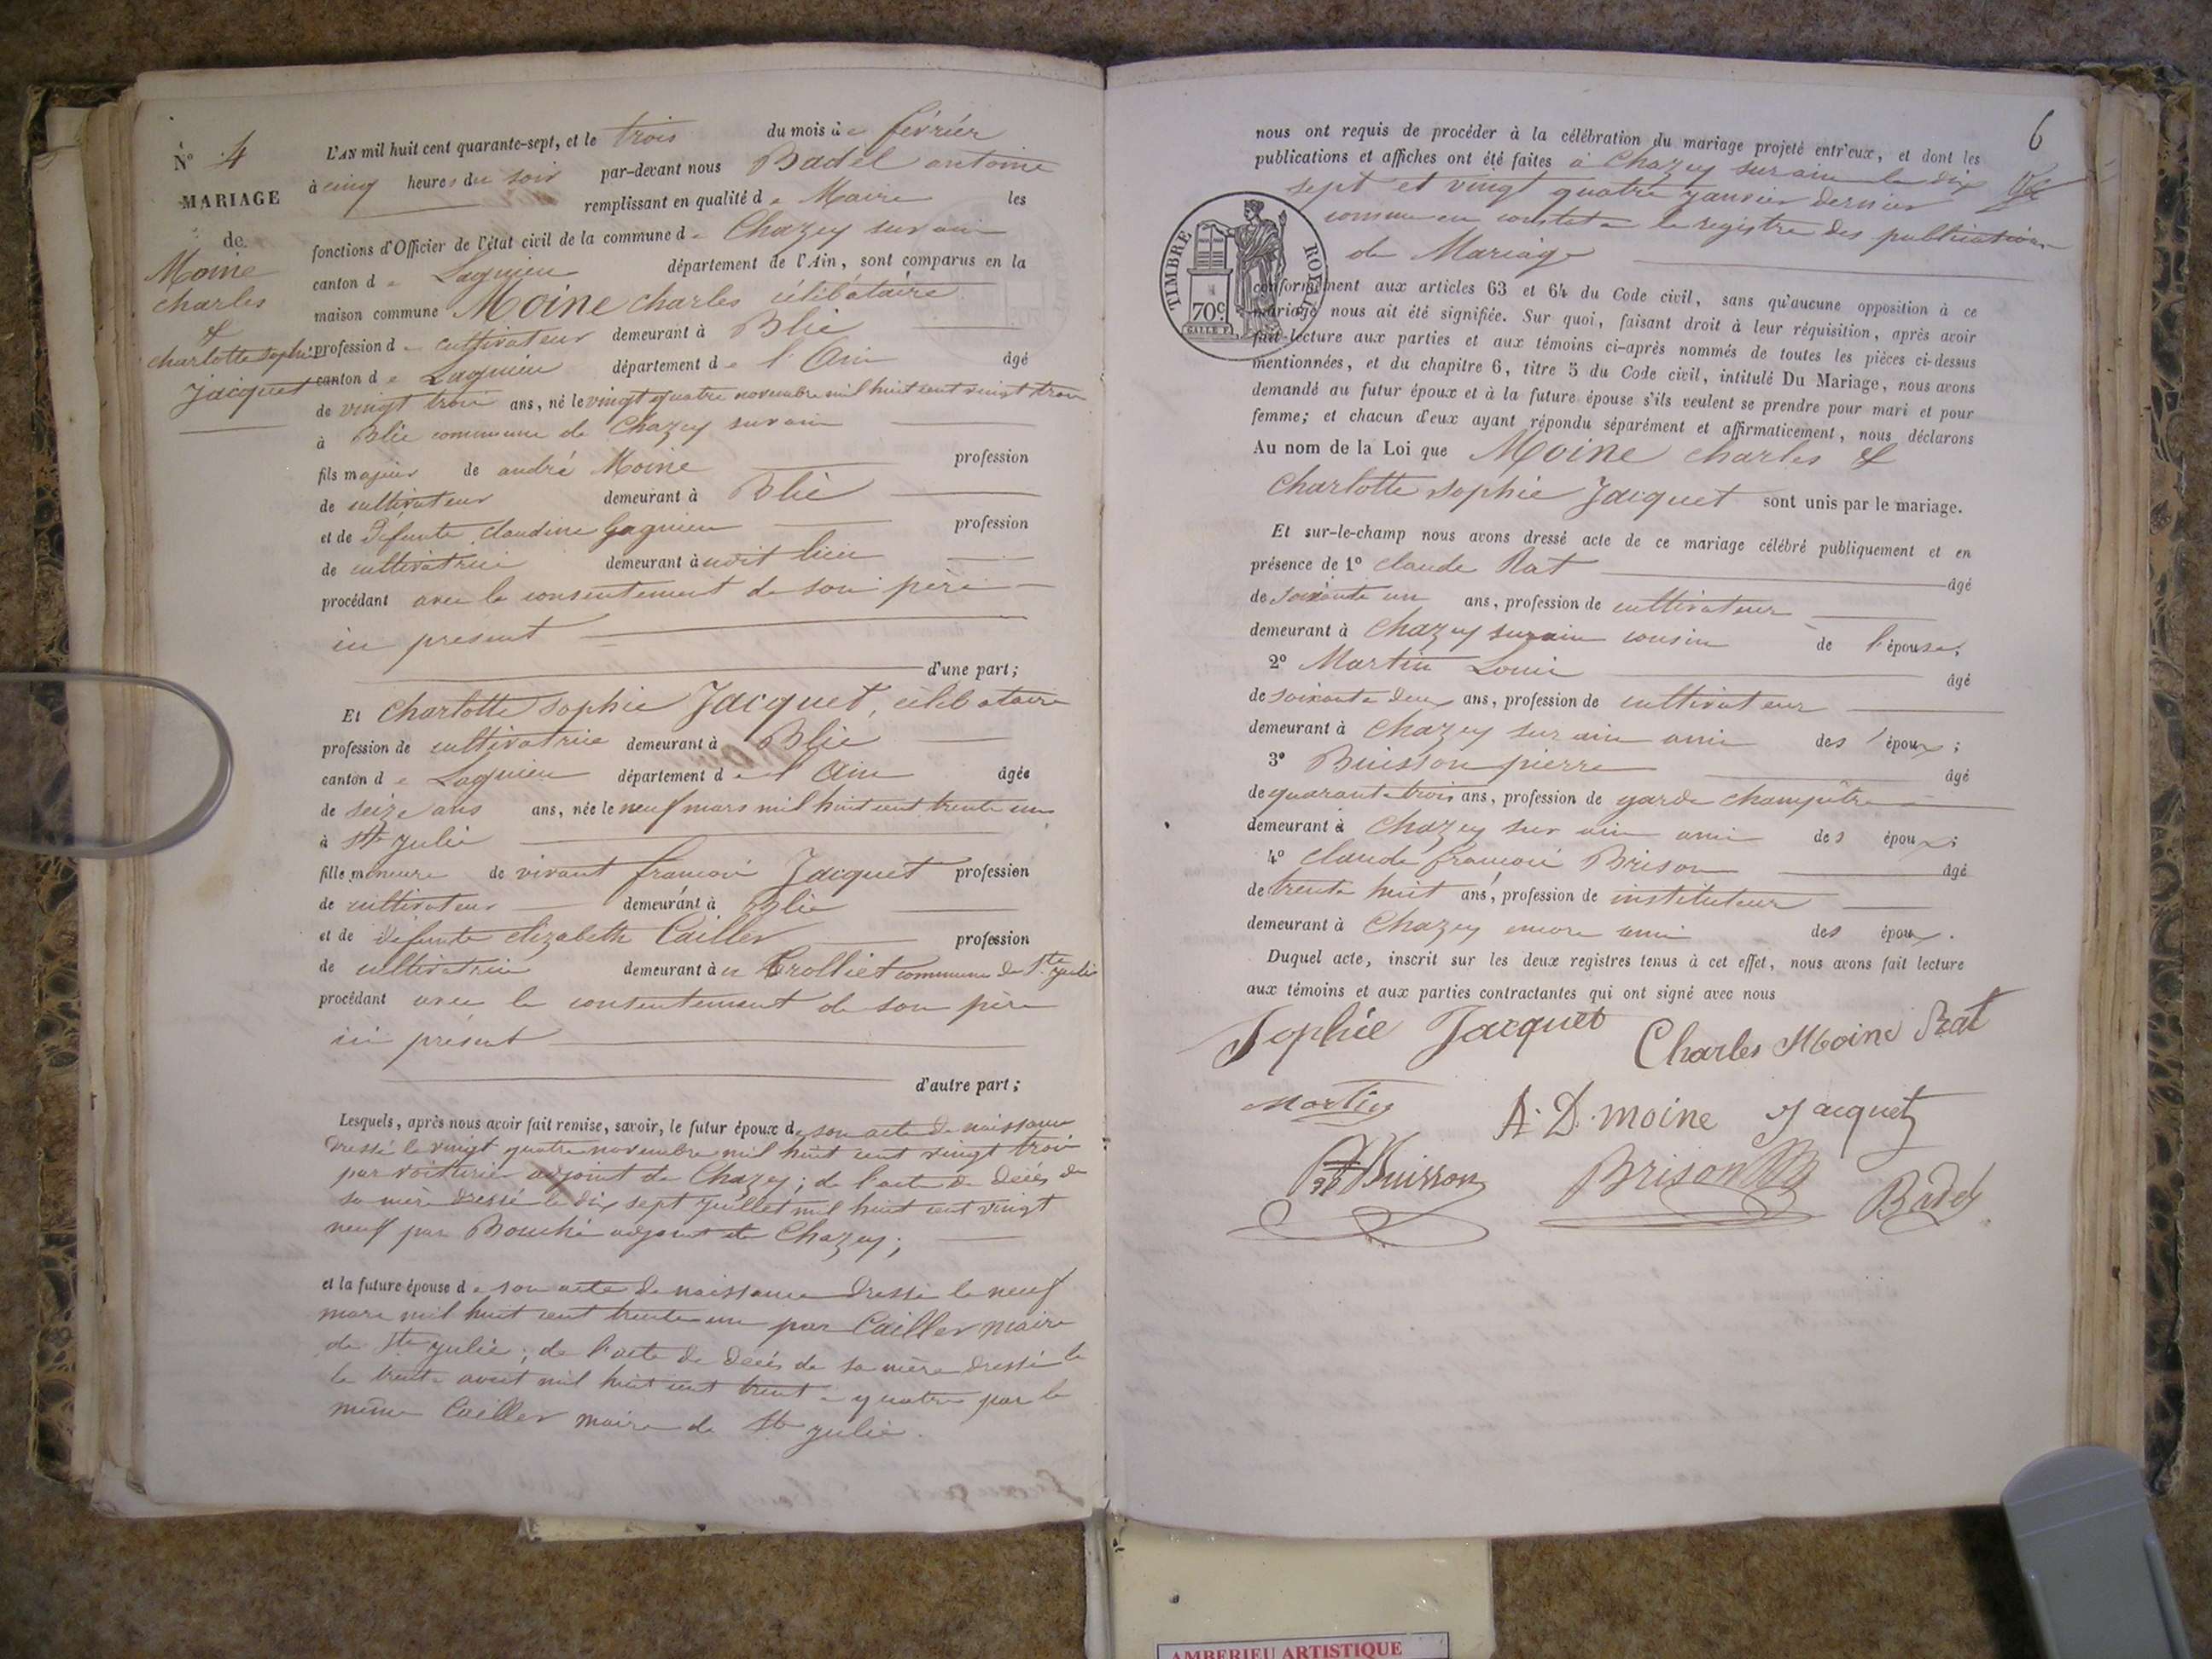 N° 4
MARIAGE
de
Moine
charles
&
charlotte sophie
Jacquet
L'AN mil huit cent quarante-sept, et le trois du mois de février
à cinq heures du soir par-devant nous Badel antoine
remplissant en qualité de Maire les
fonctions d'Officier de l'état civil de la commune de Chazey sur ain
canton de Lagnieu département de l'Ain, sont comparus en la
maison commune Moine charles célibataire
profession de cultivateur demeurant à Blie
canton de Lagnieu département de l'Ain âgé
de vingt trois ans, né le vingt quatre novembre mil huit cent vingt trois
à Blie commune de Chazey sur ain
fils majeur de andré Moine profession
de cultivateur demeurant à Blie
et de Défunte claudine Gagnieu profession
de cultivatrice demeurant à udit lieu
procédant avec le consentement de son père
ici présent
d'une part;
Et Charlotte sophie Jacquet, célibataire
profession de cultivatrice demeurant à Blie
canton de Lagnieu département de l'Ain âgée
de seize ans ans, née le neuf mars mil huit cent trente un
à Ste julie
fille mineure de vivant francois Jacquet profession
de cultivateur demeurant à Blie
et de défunte elizabeth Cailler profession
de cultivatrice demeurant à u Trolliet commune de Ste julie
procédant avec le consentement de son père
ici présent
d'autre part;
Lesquels, après nous avoir fait remise, savoir, le futur époux de son acte de naissance
Dressé le vingt quatre novembre mil huit cent vingt trois
par voiturier adjoint de Chazey; de l'acte de Décés de
sa mère dressé le dix sept juillet mil huit cent vingt
neuf par Bouché adjoint de Chazey;
et la future épouse de son acte de naissance dressé le neuf
mars mil huit cent trente un par Cailler maire
de Ste julie; de l'acte de décés de sa mère dressé le
le trente avout mil huit cent trente quatre par le
même Cailler maire de Ste julie.
6
nous ont requis de procéder à la célébration du mariage projeté entr'eux, et dont les
publications et affiches ont été faites à Chazey sur ain le dix
sept et vingt quatre janvier dernier
comme en constate le registre des publications
de Mariage
TIMBRE ROYAL
70c
conformément aux articles 63 et 64 du Code civil, sans qu'aucune opposition à ce
mariage nous ait été signifiée. Sur quoi, faisant droit à leur réquisition, après avoir
fait lecture aux parties et aux témoins ci-après nommés de toutes les pièces ci-dessus
mentionnées, et du chapitre 6, titre 5 du Code civil, intitulé Du Mariage, nous avons
demandé au futur époux et à la future épouse s'ils veulent se prendre pour mari et pour
femme; et chacun d'eux ayant répondu séparément et affirmativement, nous déclarons
Au nom de la Loi que Moine charles &
Charlotte sophie Jacquet sont unis par le mariage.
Et sur-le-champ nous avons dressé acte de ce mariage célébré publiquement et en
présence de 1° claude Rat âgé
de Soixante un ans, profession de cultivateur
demeurant à Chazey sur ain cousin de l'épouse;
2° Martin Louis âgé
de soixante deux ans, profession de cultivateur
demeurant à Chazey sur ain ami des époux;
3° Buisson pierre âgé
de quarante trois ans, profession de garde champêtre
demeurant à Chazey sur ain ami des époux;
4° claude francois Brison âgé
de trente huit ans, profession de instituteur
demeurant à Chazey encore ami des époux.
Duquel acte, inscrit sur les deux registres tenus à cet effet, nous avons fait lecture
aux témoins et aux parties contractantes qui ont signé avec nous
Sophie Jacquet Charles Moine Rat
Martin A. D. moine Jacquet
Buisson Brison Badel
AMBERIEU ARTISTIQUE